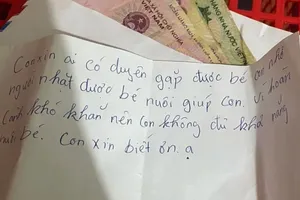 Con xin ai có duyên gặp được bé con nhỏ
người nhặt được bé nuôi giúp con. Vì hoàn
Cảnh khó khăn nên con không đủ khả năng
nuôi bé. Con xin biết ơn. ạ